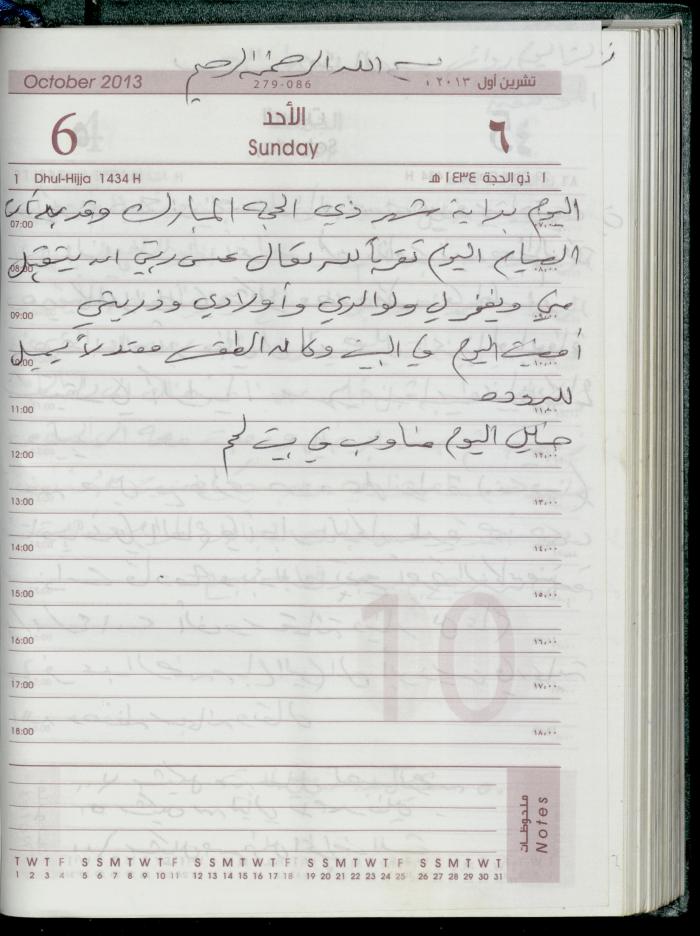 بسم الله الرحمن الرحيم
October 2013
279-086
تشرين أول ٢٠١٣ م
6
الأحد
Sunday
٦
1 Dhul-Hijja 1434 H
١ ذو الحجة ١٤٣٤ هـ
اليوم بداية شهر ذي الحجه المبارك وقد بدأت
07:00
الصيام اليوم تقرباً لله تعالى عسى ربي ان يتقبل
08:00
مني ويغفر لي ولوالدي وأولادي وذريتي
09:00
أمضيت اليوم في البيت وكان الطقس معتدلاً يميل
10:00
للبروده
11:00 ١١,٠٠
اليوم مناوب في بيت لحم
12:00 ١٢,٠٠
13:00 ١٣,٠٠
14:00 ١٤,٠٠
15:00 ١٥,٠٠
10
16:00 ١٦,٠٠
17:00 ١٧,٠٠
18:00 ١٨,٠٠
ملحوظات
Notes
T W T F S S M T W T F S S M T W T F S S M T W T F S S M T W T
1 2 3 4 5 6 7 8 9 10 11 12 13 14 15 16 17 18 19 20 21 22 23 24 25 26 27 28 29 30 31